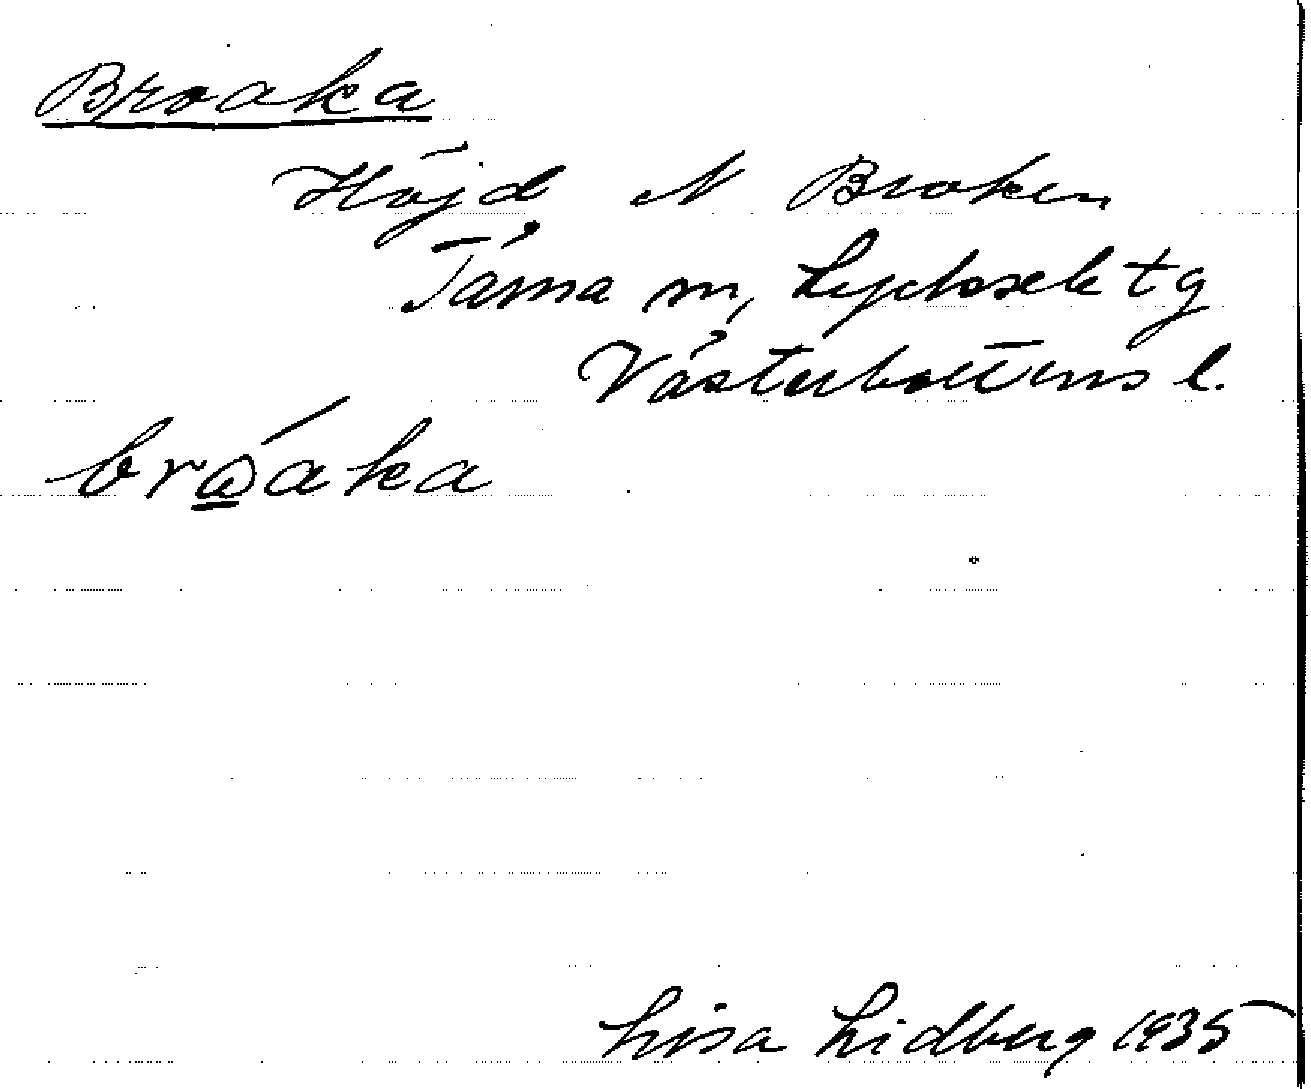 Broaka
Höjd N Broken
Tärna sn, Lycksele tg
Västerbottens l.
Lisa Lidberg 1935